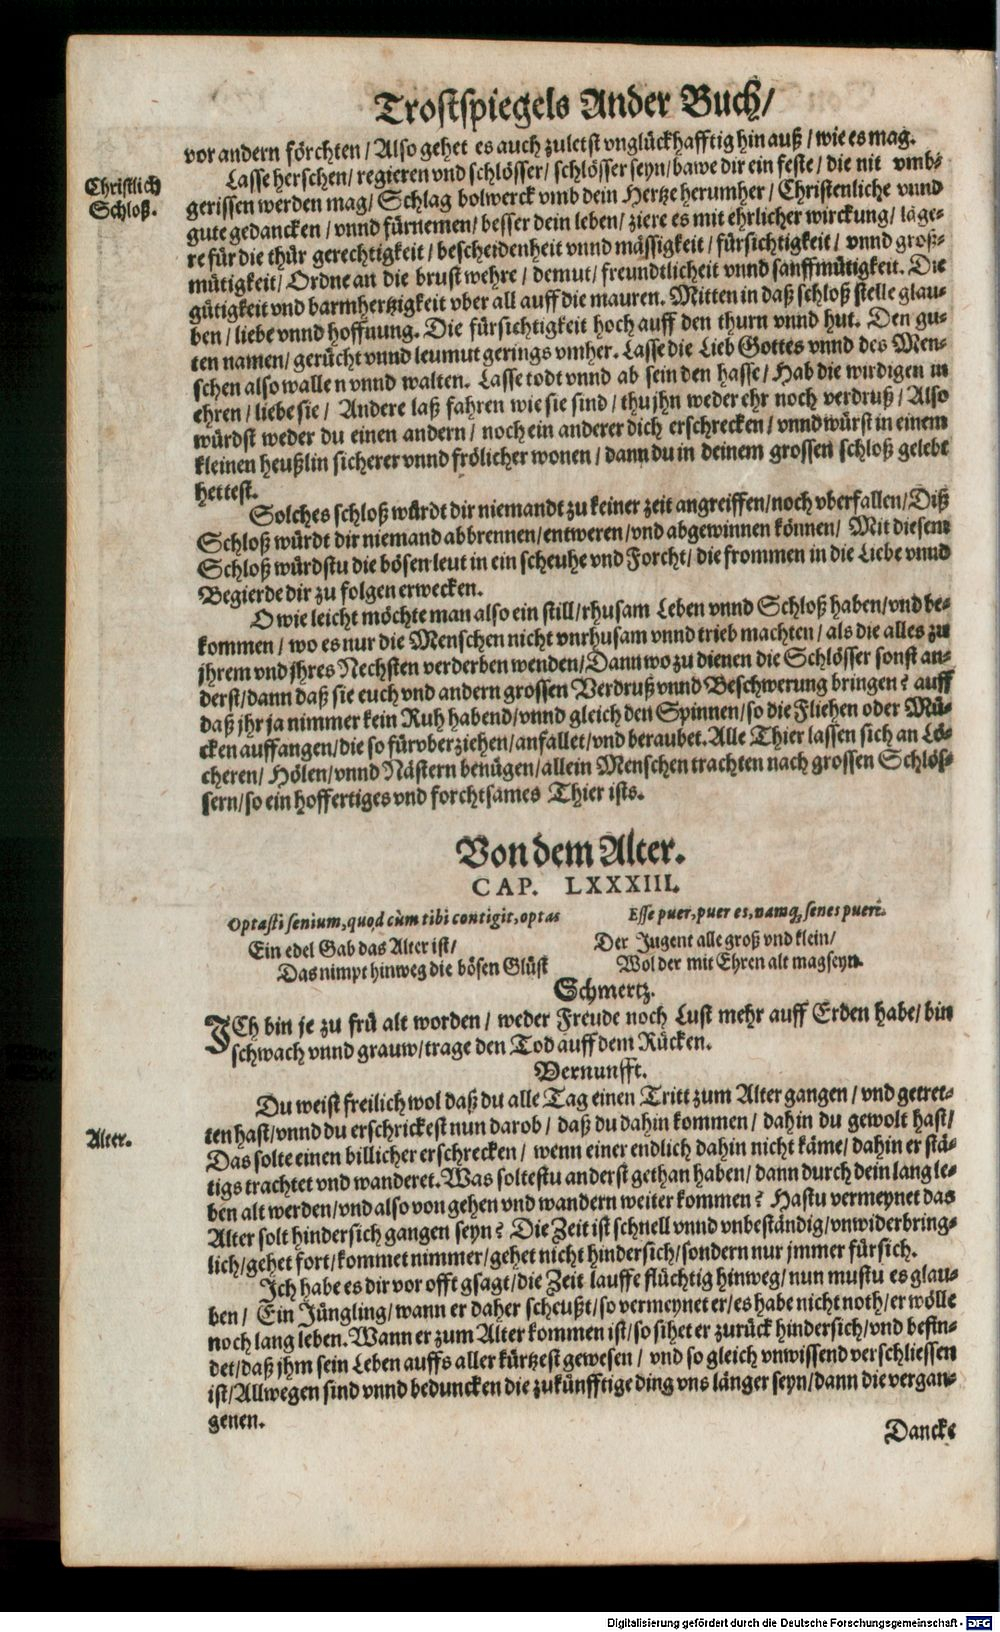 Trostspiegels Ander Buch/
vor andern förchten/ Also gehet es auch zuletst vnglückhafftig hinauß/ wie es mag.
Christlich
Schloß.
Lasse herschen/ regieren vnd schlösser/ schlösser seyn/ bawe dir ein feste/ die nit vmb-
gerissen werden mag/ Schlag bolwerck vmb dein Hertze herumher/ Christenliche vnnd
gute gedancken/ vnnd fürnemen/ besser dein leben/ ziere es mit ehrlicher wirckung/ läge-
re für die thür gerechtigkeit/ bescheidenheit vnnd mässigkeit/ fürsichtigkeit/ vnnd groß-
mütigkeit/ Ordne an die brustwehre/ demut/ freundtlicheit vnnd sanffmütigkeit. Die
gütigkeit vnd barmhertzigkeit vber all auff die mauren. Mitten in daß schloß stelle glau-
ben/ liebe vnnd hoffnung. Die fürsichtigkeit hoch auff den thurn vnnd hut. Den gu-
ten namen/ gerücht vnnd leumut gerings vmher. Lasse die Lieb Gottes vnnd des Men-
schen also wallen vnnd walten. Lasse todt vnnd ab sein den hasse/ Hab die wirdigen in
ehren/ liebe sie/ Andere laß fahren wie sie sind/ thu jhn weder ehr noch verdruß/ Also
würdst weder du einen andern/ noch ein anderer dich erschrecken/ vnnd würst in einem
kleinen heußlin sicherer vnnd frölicher wonen/ dann du in deinem grossen schloß gelebt
hettest.
Solches schloß würdt dir niemandt zu keiner zeit angreiffen/ noch vberfallen/ Diß
Schloß würdt dir niemand abbrennen/ entweren/ vnd abgewinnen können/ Mit diesem
Schloß würdstu die bösen leut in ein scheuhe vnd Forcht/ die frommen in die Liebe vnnd
Begierde dir zu folgen erwecken.
O wie leicht möchte man also ein still/ rhusam Leben vnnd Schloß haben/ vnd be-
kommen/ wo es nur die Menschen nicht vnrhusam vnnd trieb machten/ als die alles zu
jhrem vnd jhres Nechsten verderben wenden/ Dann wo zu dienen die Schlösser sonst an-
derst/ dann daß sie euch vnd andern grossen Verdruß vnnd Beschwerung bringen? auff
daß jhr ja nimmer kein Ruh habend/ vnnd gleich den Spinnen/ so die Fliehen oder Mü-
cken auffangen/ die so fürvberziehen/ anfallet/ vnd beraubet. Alle Thier lassen sich an Lö-
cheren/ Hölen/ vnnd Nästern benügen/ allein Menschen trachten nach grossen Schlös-
sern/ so ein hoffertiges vnd forchtsames Thier ists.
Von dem Alter.
CAP. LXXXIII.
Optasti senium, quod cùm tibi contigit, optas
Esse puer, puer es, namq́; senes pueri.
Ein edel Gab das Alter ist/
Das nimpt hinweg die bösen Glüst
Der Jugent alle groß vnd klein/
Wol der mit Ehren alt mag seyn.
Schmertz.
ICh bin je zu frü alt worden/ weder Freude noch Lust mehr auff Erden habe/ bin
schwach vnnd grauw/ trage den Tod auff dem Rücken.
Vernunfft.
Alter.
Du weist freilich wol daß du alle Tag einen Tritt zum Alter gangen/ vnd getret-
ten hast/ vnnd du erschrickest nun darob/ daß du dahin kommen/ dahin du gewolt hast/
Das solte einen billicher erschrecken/ wenn einer endlich dahin nicht käme/ dahin er stä-
tigs trachtet vnd wanderet. Was soltestu anderst gethan haben/ dann durch dein lang le-
ben alt werden/ vnd also von gehen vnd wandern weiter kommen? Hastu vermeynet das
Alter solt hindersich gangen seyn? Die Zeit ist schnell vnnd vnbeständig/ vnwiderbring-
lich/ gehet fort/ kommet nimmer/ gehet nicht hindersich/ sondern nur jmmer fürsich.
Ich habe es dir vor offt gsagt/ die Zeit lauffe flüchtig hinweg/ nun mustu es glau-
ben/ Ein Jüngling/ wann er daher scheußt/ so vermeynet er/ es habe nicht noth/ er wölle
noch lang leben. Wann er zum Alter kommen ist/ so sihet er zurück hindersich/ vnd befin-
det/ daß jhm sein Leben auffs aller kürtzest gewesen/ vnd so gleich vnwissend verschliessen
ist/ Allwegen sind vnnd beduncken die zukünfftige ding vns länger seyn/ dann die vergan-
genen.
Danck-
Digitalisierung gefördert durch die Deutsche Forschungsgemeinschaft - DFG